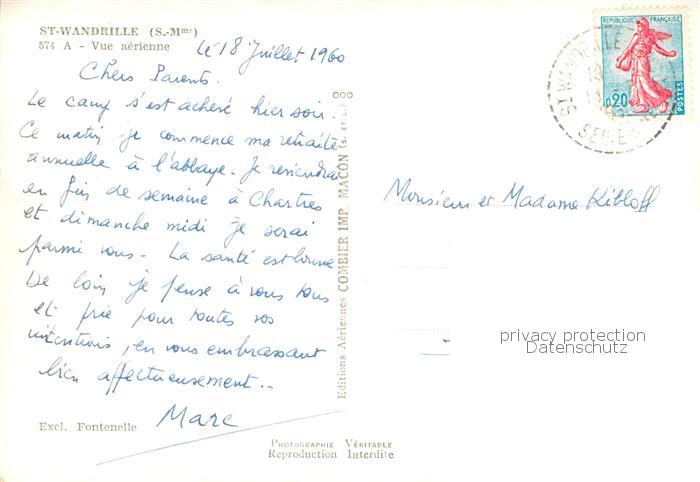 ST-WANDRILLE (S.-Mme)
574 A - Vue aérienne
le 18 Juillet 1960
Chers Parents.
Le camp s'est achevé hier soir.
Ce matin je commence ma retraite
annuelle à l'abbaye. Je reviendrai
en fin de semaine à Chartres
et dimanche midi je serai
parmi vous - La santé est bonne
De loin je pense à vous tous
et prie pour toutes vos
intentions, en vous embrassant
bien affectueusement..
Marc
Excl. Fontenelle
Editions Aériennes COMBIER IMP. MACON (S. ET L.)
PHOTOGRAPHIE VÉRITABLE
Reproduction Interdite
REPUBLIQUE FRANÇAISE
0,20
POSTES
ST WANDRILLE
18
SEINE
Monsieur et Madame
privacy protection
Datenschutz